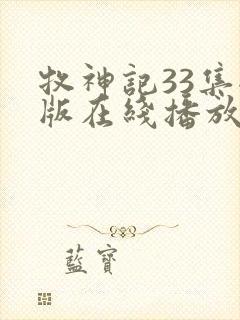 牧神記33集
版在綫播放
藍寶